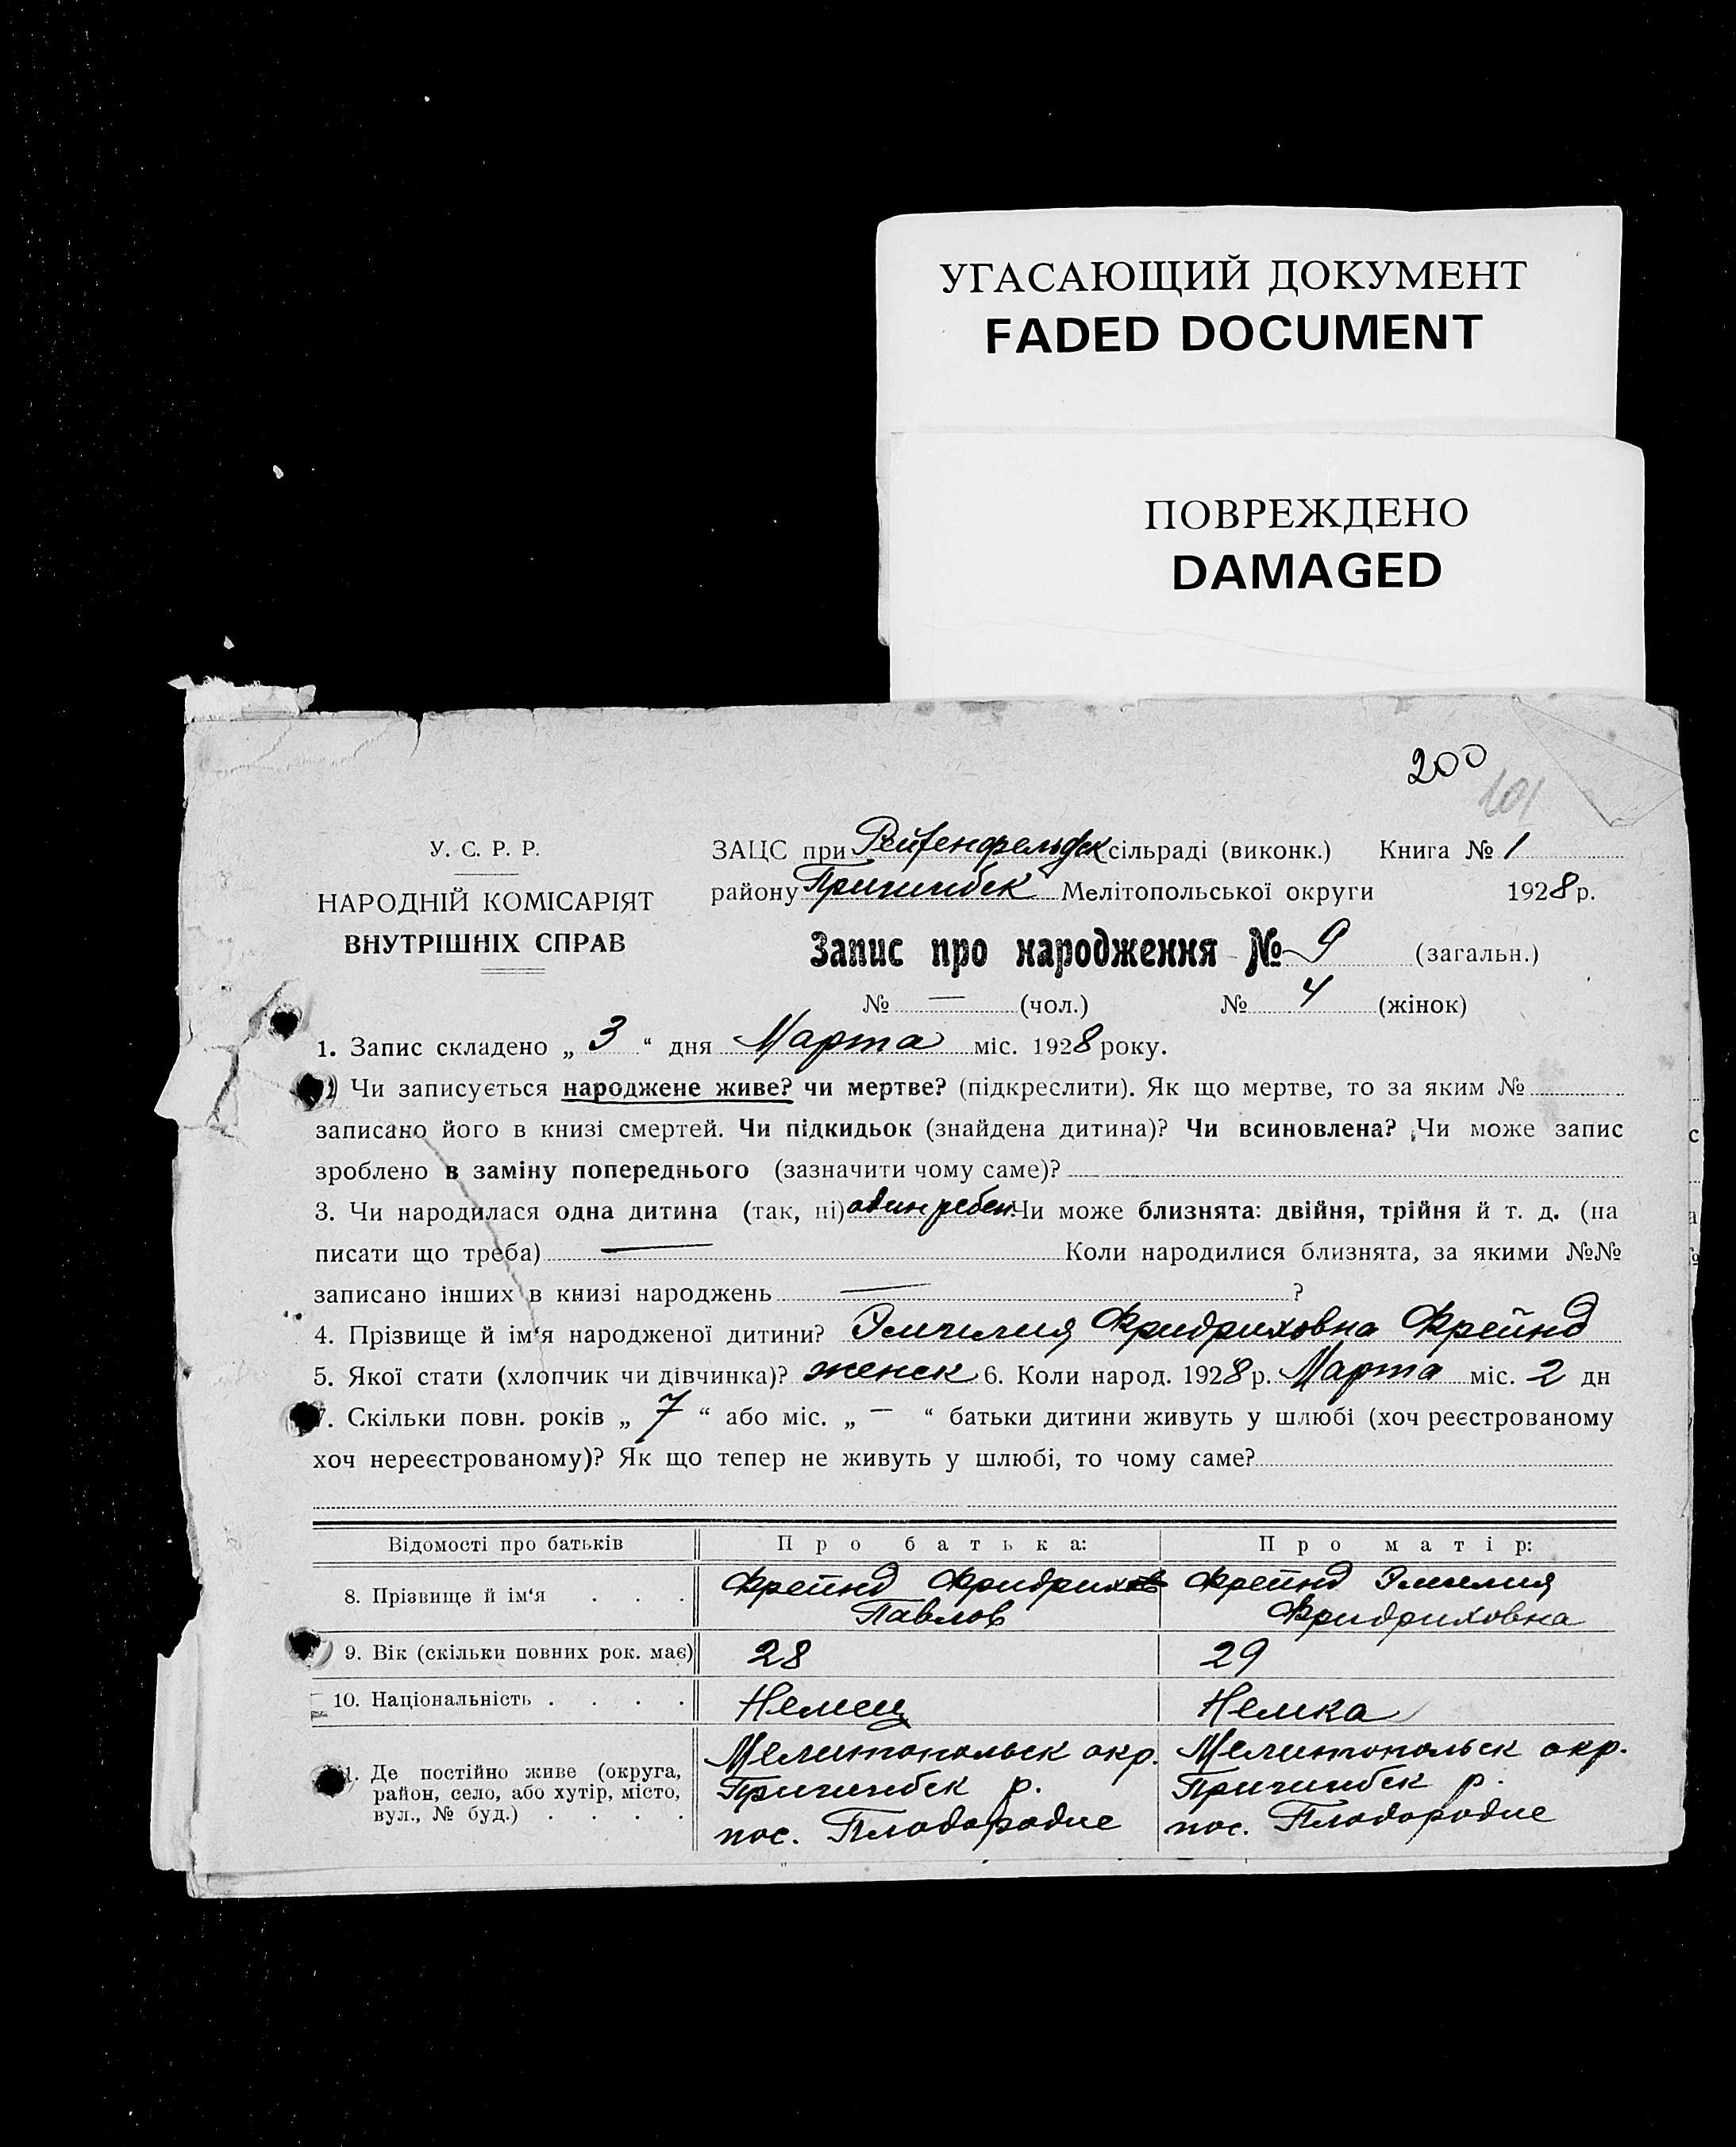 УГАСАЮЩИЙ ДОКУМЕНТ
FADED DOCUMENT
ПОВРЕЖДЕНО
DAMAGED
200
101
У. С. Р. Р.
НАРОДНІЙ КОМІСАРІЯТ
ВНУТРІШНІХ СПРАВ
ЗАЦС при Рейхенфельдск сільраді (виконк.) Книга № 1
району Пришибск Мелітопольської округи 1928 р.
Запис про народження № 9 (загальн.)
№ — (чол.) № 4 (жінок)
1. Запис складено „ 3 “ дня Марта міс. 1928 року.
) Чи записується народжене живе? чи мертве? (підкреслити). Як що мертве, то за яким №
записано його в книзі смертей. Чи підкидьок (знайдена дитина)? Чи всиновлена? Чи може запис
зроблено в заміну попереднього (зазначити чому саме)?
3. Чи народилася одна дитина (так, ні) один ребен. Чи може близнята: двійня, трійня й т. д. (на
писати що треба) — Коли народилися близнята, за якими №№
записано інших в книзі народжень — ?
4. Прізвище й ім‘я народженої дитини? Эмилия Фридриховна Фрейнд
5. Якої стати (хлопчик чи дівчинка)? женск 6. Коли народ. 1928 р. Марта міс. 2 дн
7. Скільки повн. років „ 7 “ або міс. „ — “ батьки дитини живуть у шлюбі (хоч реєстрованому
хоч нереєстрованому)? Як що тепер не живуть у шлюбі, то чому саме?
Відомості про батьків Про батька: Про матір:
8. Прізвище й ім‘я . . . Фрейнд Фридрих Фрейнд Эмилия
Павлов Фридриховна
9. Вік (скільки повних рок. має) 28 29
10. Національність . . . . Немец Немка
1. Де постійно живе (округа, Мелитопольск окр. Мелитопольск окр.
район, село, або хутір, місто, Пришибск р. Пришибск р.
вул., № буд.) . . . . пос. Плодородие пос. Плодородие